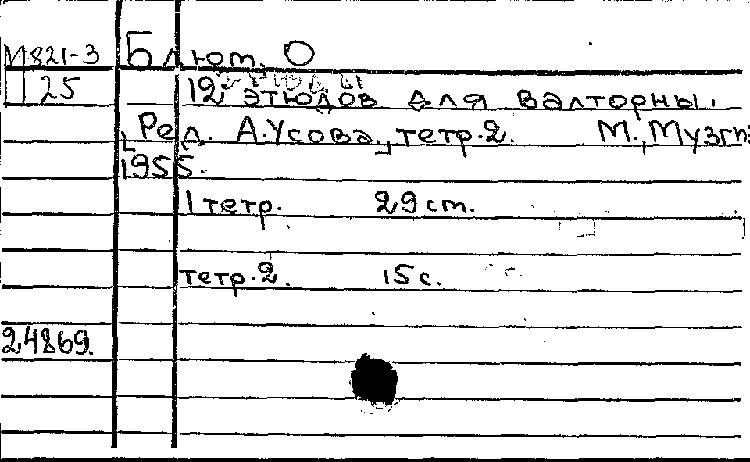 М821-3 Блют. О
П 25 12 этюдов для валторны.
Ред. А.Усова., тетр.2. М., Музгиз
1955.
1 тетр. 29 ст.
тетр.2. 15 с.
24869.